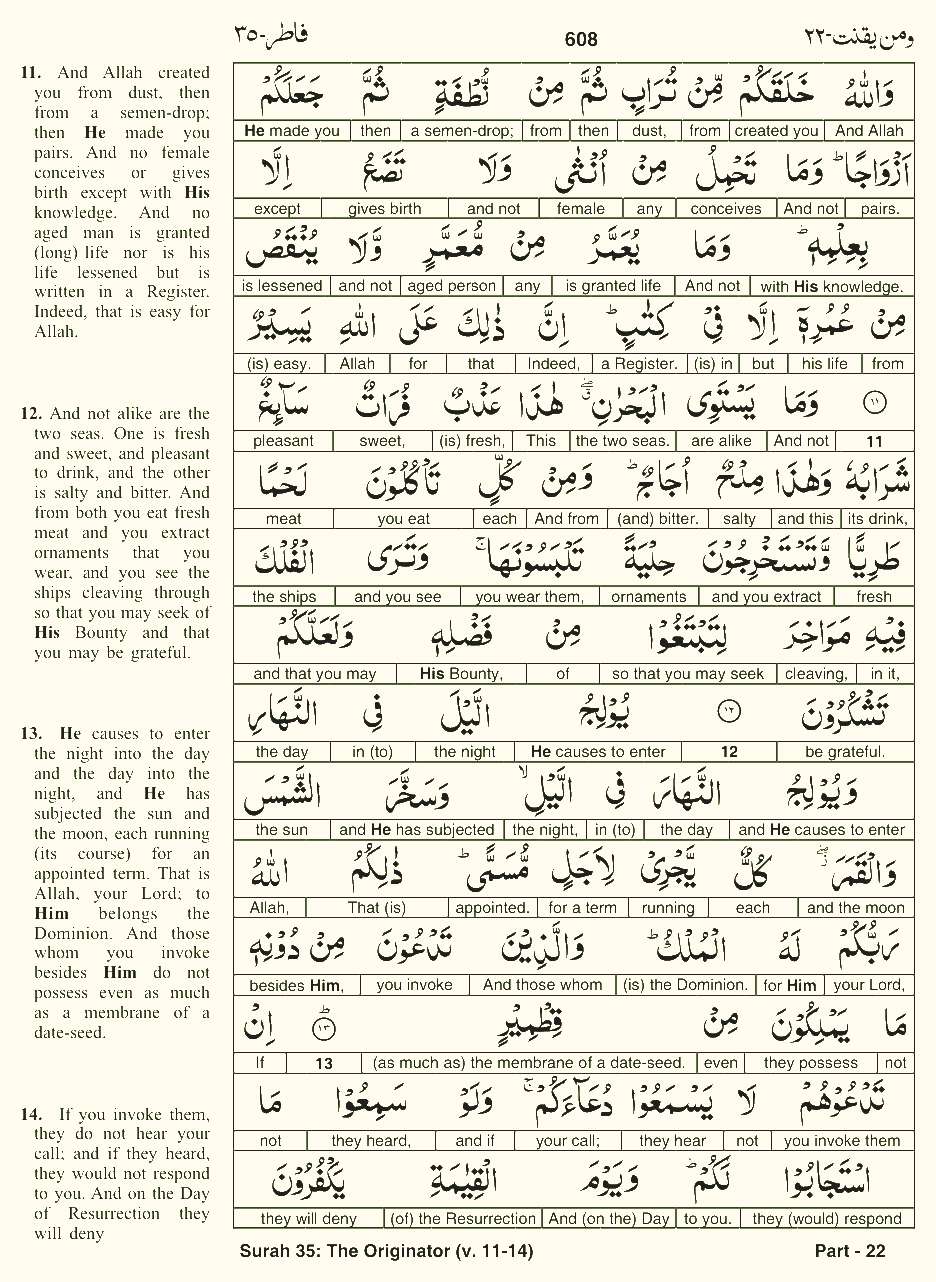 فاطر-٣٥ 608 ومن يقنت-٢٢
11. And Allah created
you from dust, then
from a semen-drop;
then He made you
pairs. And no female
conceives or gives
birth except with His
knowledge. And no
aged man is granted
(long) life nor is his
life lessened but is
written in a Register.
Indeed, that is easy for
Allah.
12. And not alike are the
two seas. One is fresh
and sweet, and pleasant
to drink, and the other
is salty and bitter. And
from both you eat fresh
meat and you extract
ornaments that you
wear, and you see the
ships cleaving through
so that you may seek of
His Bounty and that
you may be grateful.
13. He causes to enter
the night into the day
and the day into the
night, and He has
subjected the sun and
the moon, each running
(its course) for an
appointed term. That is
Allah, your Lord; to
Him belongs the
Dominion. And those
whom you invoke
besides Him do not
possess even as much
as a membrane of a
date-seed.
14. If you invoke them,
they do not hear your
call; and if they heard,
they would not respond
to you. And on the Day
of Resurrection they
will deny
وَاللّٰهُ خَلَقَكُمْ مِّنْ تُرَابٍ ثُمَّ مِنْ نُّطْفَةٍ ثُمَّ جَعَلَكُمْ
He made you then a semen-drop; from then dust, from created you And Allah
اَزْوَاجًا ؕ وَمَا تَحْمِلُ مِنْ اُنْثٰى وَلَا تَضَعُ اِلَّا
except gives birth and not female any conceives And not pairs.
بِعِلْمِهٖ ؕ وَمَا يُعَمَّرُ مِنْ مُّعَمَّرٍ وَّلَا يُنْقَصُ
is lessened and not aged person any is granted life And not with His knowledge.
مِنْ عُمُرِهٖٓ اِلَّا فِيْ كِتٰبٍ ؕ اِنَّ ذٰلِكَ عَلَى اللّٰهِ يَسِيْرٌ
(is) easy. Allah for that Indeed, a Register. (is) in but his life from
١١ وَمَا يَسْتَوِى الْبَحْرٰنِ ۖۗ هٰذَا عَذْبٌ فُرَاتٌ سَآئِغٌ
pleasant sweet, (is) fresh, This the two seas. are alike And not 11
شَرَابُهٗ وَهٰذَا مِلْحٌ اُجَاجٌ ؕ وَمِنْ كُلٍّ تَاْكُلُوْنَ لَحْمًا
meat you eat each And from (and) bitter. salty and this its drink,
طَرِيًّا وَّتَسْتَخْرِجُوْنَ حِلْيَةً تَلْبَسُوْنَهَا ۚ وَتَرَى الْفُلْكَ
the ships and you see you wear them, ornaments and you extract fresh
فِيْهِ مَوَاخِرَ لِتَبْتَغُوْا مِنْ فَضْلِهٖ وَلَعَلَّكُمْ
and that you may His Bounty, of so that you may seek cleaving, in it,
تَشْكُرُوْنَ ١٢ يُوْلِجُ الَّيْلَ فِي النَّهَارِ
the day in (to) the night He causes to enter 12 be grateful.
وَيُوْلِجُ النَّهَارَ فِي الَّيْلِ ۙ وَسَخَّرَ الشَّمْسَ
the sun and He has subjected the night, in (to) the day and He causes to enter
وَالْقَمَرَ ۖؗ كُلٌّ يَّجْرِيْ لِاَجَلٍ مُّسَمًّى ؕ ذٰلِكُمُ اللّٰهُ
Allah, That (is) appointed. for a term running each and the moon
رَبُّكُمْ لَهُ الْمُلْكُ ؕ وَالَّذِيْنَ تَدْعُوْنَ مِنْ دُوْنِهٖ
besides Him, you invoke And those whom (is) the Dominion. for Him your Lord,
مَا يَمْلِكُوْنَ مِنْ قِطْمِيْرٍ ؕ ١٣ اِنْ
If 13 (as much as) the membrane of a date-seed. even they possess not
تَدْعُوْهُمْ لَا يَسْمَعُوْا دُعَآءَكُمْ ۚ وَلَوْ سَمِعُوْا مَا
not they heard, and if your call; they hear not you invoke them
اسْتَجَابُوْا لَكُمْ ؕ وَيَوْمَ الْقِيٰمَةِ يَكْفُرُوْنَ
they will deny (of) the Resurrection And (on the) Day to you. they (would) respond
Surah 35: The Originator (v. 11-14) Part - 22